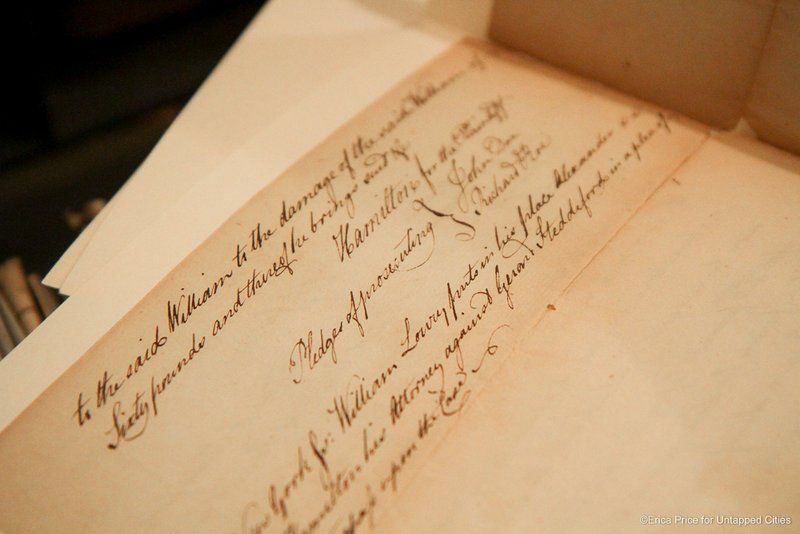 to the said William to the damage of the said William of
Sixty pounds and thereof he brings suit &c
Hamilton for the Plaintiff
Pledges of prosecuting } John Doe
Richard Roe
York ss: William Lowry puts in his place Alexander
Hamilton his Attorney against Gerard Steddeford in a plea of
upon the Case
©Erica Price for Untapped Cities